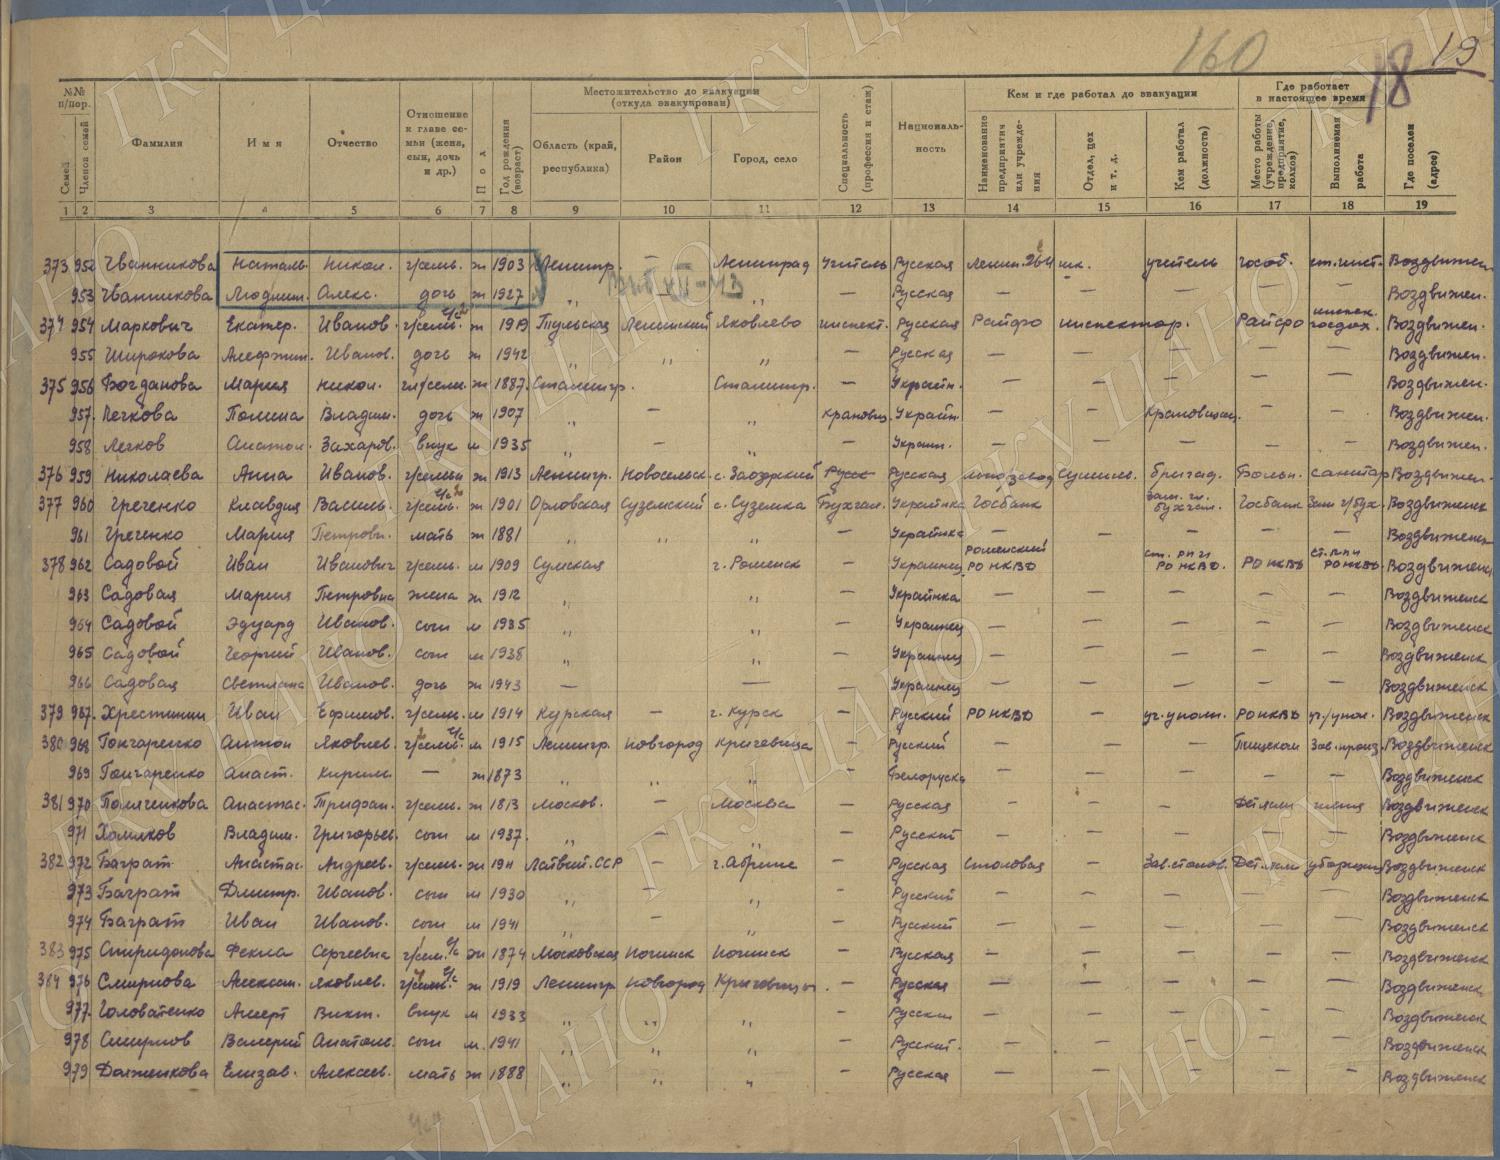 160
18 19
№№ п/пор.
Семей
Членов семей
Фамилия
Имя
Отчество
Отношение к главе семьи (жена, сын, дочь и др.)
Пол
Год рождения (возраст)
Местожительство до эвакуации (откуда эвакуирован)
Область (край, республика)
Район
Город, село
Специальность (профессия и стаж)
Национальность
Кем и где работал до эвакуации
Наименование предприятия или учреждения
Отдел, цех и т. д.
Кем работал (должность)
Где работает в настоящее время
Место работы (учреждение, предприятие, колхоз)
Выполняемая работа
Где поселен (адрес)
1 2 3 4 5 6 7 8 9 10 11 12 13 14 15 16 17 18 19
373 952 Чванникова Наталь. Никол. г/семь. ж 1903 Ленингр. — Ленинград Учитель Русская Ленин. шк. учитель Воздвижен
953 Чванникова Людмил. Алекс. дочь ж 1927 „ „ — Русская — — — — — Воздвижен.
374 954 Маркович Екатер. Иванов. г/семь. ж 1919 Тульская Ленинский Яковлево инспект. Русская Райфо инспектор. Райфо инспек. госдох. Воздвижен.
955 Широкова Иванов. дочь ж 1942 „ „ „ — Русская — — — — — Воздвижен.
375 956 Богданова Мария Никол. гл/семь. ж 1887. Сталингр. Сталингр. — Украин. — — — — — Воздвижен.
957. Легкова Полина Владим. дочь ж 1907 „ — „ крановщ. Украин. — — Крановщиц. — — Воздвижен.
958 Легков Анатол. Захаров. внук м 1935 „ — „ — Украин. — — — — — Воздвижен.
376 959 Николаева Анна Иванов. г/семьи ж 1913 Ленингр. Новосельск. Русск Русская бригад. Больн. санитар Воздвижен.
377 960 Греченко Клавдия Василь. г/семь. ж 1901 Орловская Суземский с. Суземка Бухгал. Украинка Госбанк зам. гл. бухгал. Госбанк Зам г/бух. Воздвиженск
961 Греченко Мария Петровн. мать ж 1881 „ „ „ — Украинка — — — — — Воздвиженск
378 962 Садовой Иван Иванович г/семь. м 1909 Сумская г. Роменск — Украинец Роменский РО НКВД РО НКВД. РО НКВД РО НКВД. Воздвиженск
963 Садовая Мария Петровна жена ж 1912 „ „ — Украинка — — — — — Воздвиженск
964 Садовой Эдуард Иванов. сын м 1935 „ „ — Украинец — — — — — Воздвиженск
965 Садовой Георгий Иванов. сын м 1938 „ „ — Украинец — — — — — Воздвиженск
966 Садовая Светлана Иванов. дочь ж 1943 — — — Украинец — — — — — Воздвиженск
379 967. Иван Ефимов. г/семь. м 1914 Курская — г. Курск — Русский РО НКВД — уч. уполн. РО НКВД уч./упол. Воздвиженск
380 968 Гончаренко Антон Яковлев. г/семь. м 1915 Ленингр. Новгород Кречевица — Русский — — — Пищеком Зав. произ. Воздвиженск
969 Гончаренко Анаст. Кирил. — ж 1873 „ „ „ — Белоруска — — — — — Воздвиженск
381 970 Анастас. Трифон. г/семь. ж 1813 Москов. — Москва — Русская — — — Дет.ясли няня Воздвиженск
971 Хомяков Владим. Григорьев. сын м 1937. „ — „ — Русский — — — — — Воздвиженск
382 972 Баграт Анастас. Андреев. г/семь. ж 1911 Латвий. ССР — г. Абрине — Русская Столовая — Зав. столов. Дет. ясли уборщиц Воздвиженск
973 Баграт Дмитр. Иванов. сын м 1930 „ — „ — Русский — — — — — Воздвиженск
974 Баграт Иван Иванов. сын м 1941 „ — „ — Русский — — — — — Воздвиженск
383 975 Спиридонова Фекла Сергеевна г/сем. ж 1874 Московская Ногинск Ногинск — Русская — — — — — Воздвиженск
384 976 Смирнова Алексан. Яковлев. г/семь. ж 1919 Ленингр Новгород Кречевицы — Русская — — — — — Воздвиженск
977. Головатенко Алберт Викт. внук м 1933 „ „ „ — Русский — — — — — Воздвиженск
978 Смирнов Валерий Анатоль. сын м. 1941 „ „ „ — Русский. — — — — — Воздвиженск
979 Долженкова Елизав. Алексеев. мать ж 1888 „ „ „ — Русская — — — — — Воздвиженск
ГКУ ЦАНО